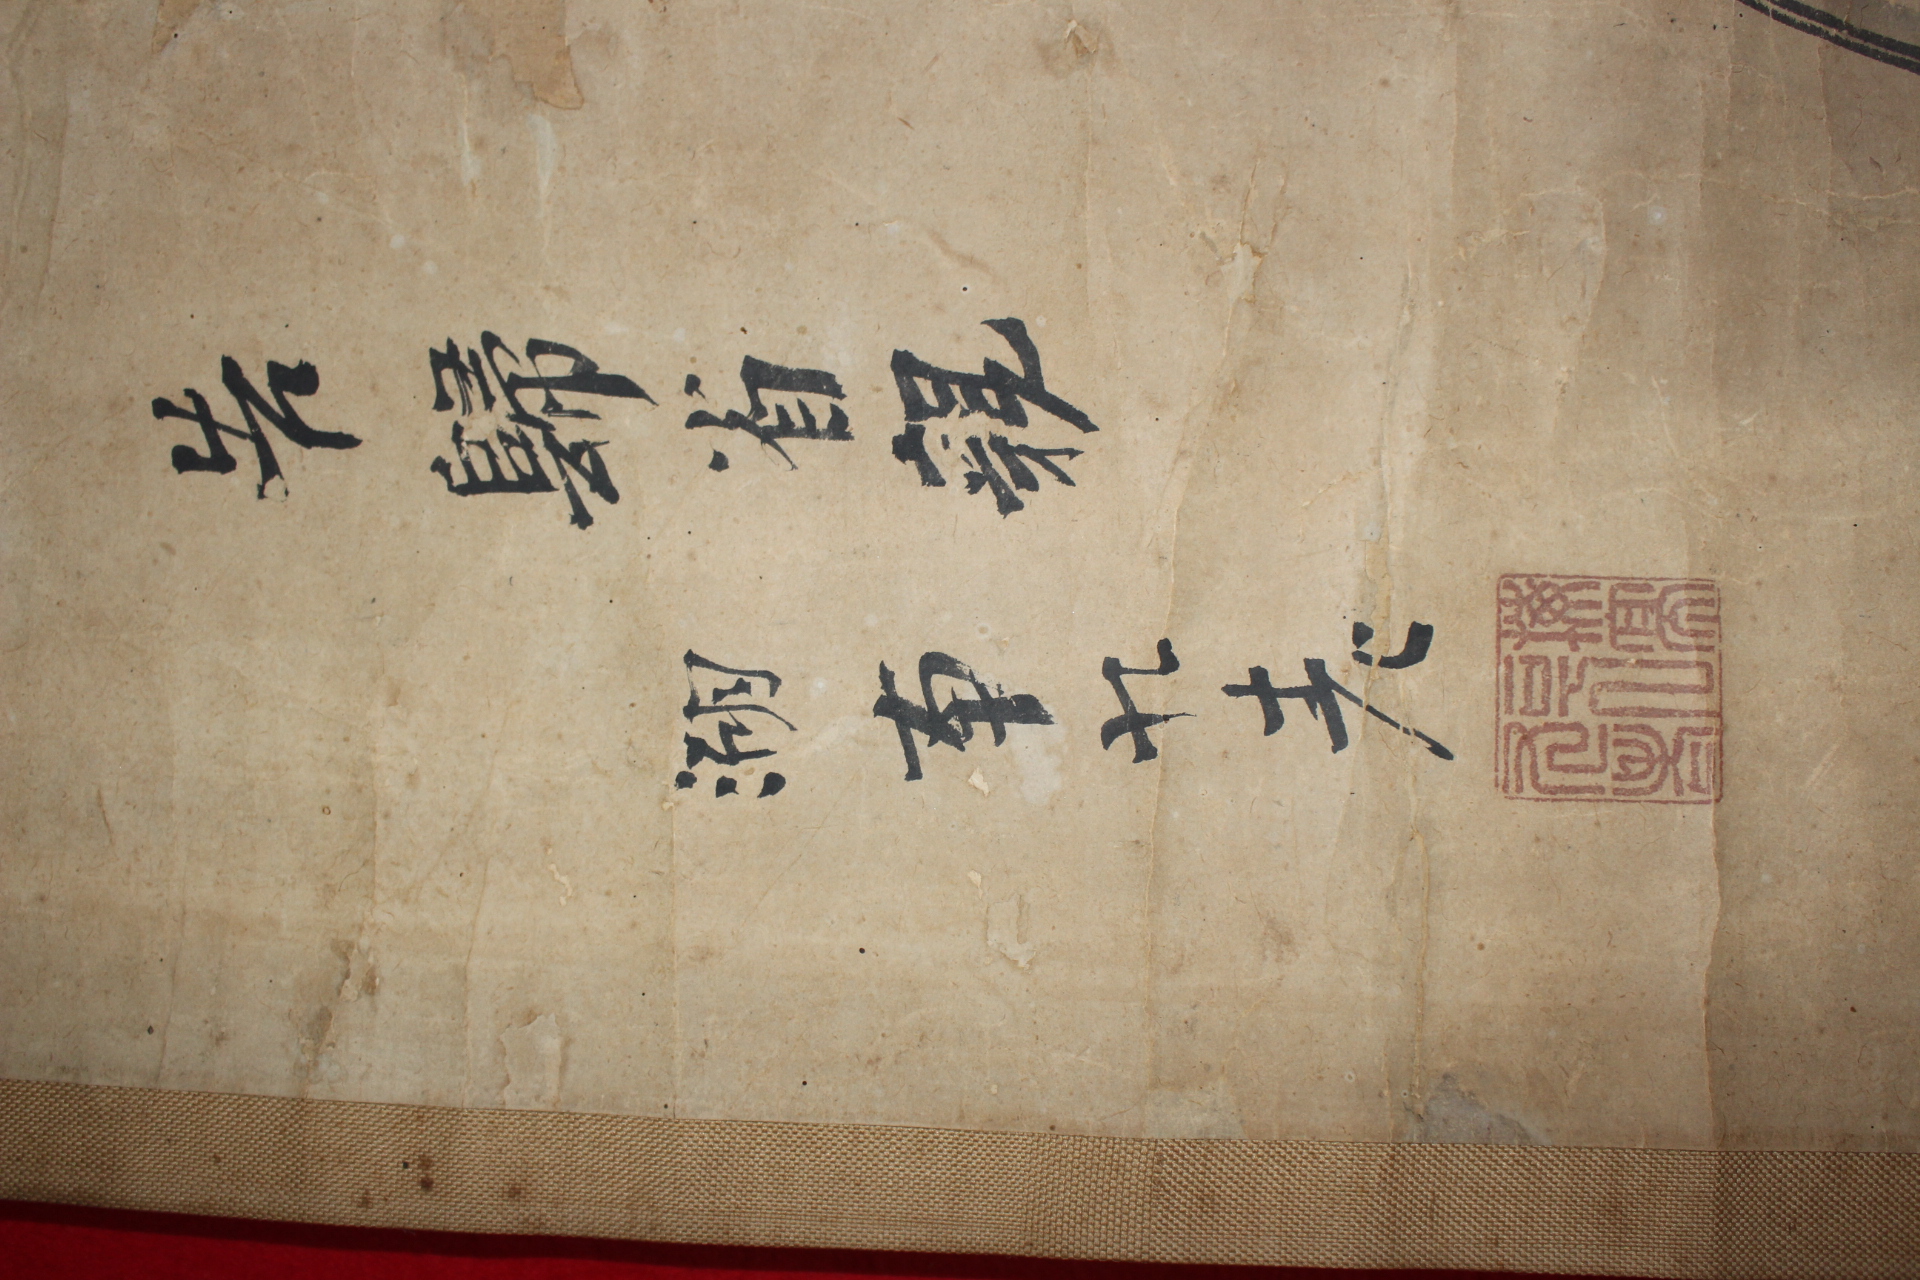 告歸省親
湖東九老